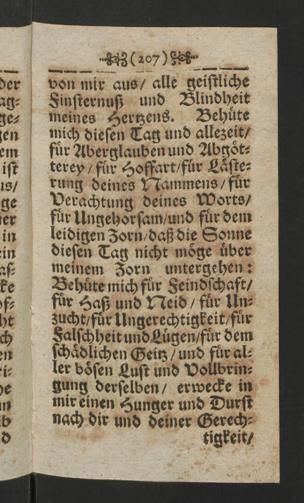 (207)
von mir aus/ alle geistliche
Finsternuß und Blindheit
meines Hertzens. Behüte
mich diesen Tag und allezeit/
für Aberglauben und Abgöt-
terey/ für Hoffart/ für Läste-
rung deines Nammens/ für
Verachtung deines Worts/
für Ungehorsam/ und für dem
leidigen Zorn/ daß die Sonne
diesen Tag nicht möge über
meinem Zorn untergehen:
Behüte mich für Feindschaft/
für Haß und Neid/ für Un-
zucht/ für Ungerechtigkeit/ für
Falschheit und Lügen/ für dem
schädlichen Geitz/ und für al-
ler bösen Lust und Vollbrin-
gung derselben/ erwecke in
mir einen Hunger und Durst
nach dir und deiner Gerech-
tigkeit/